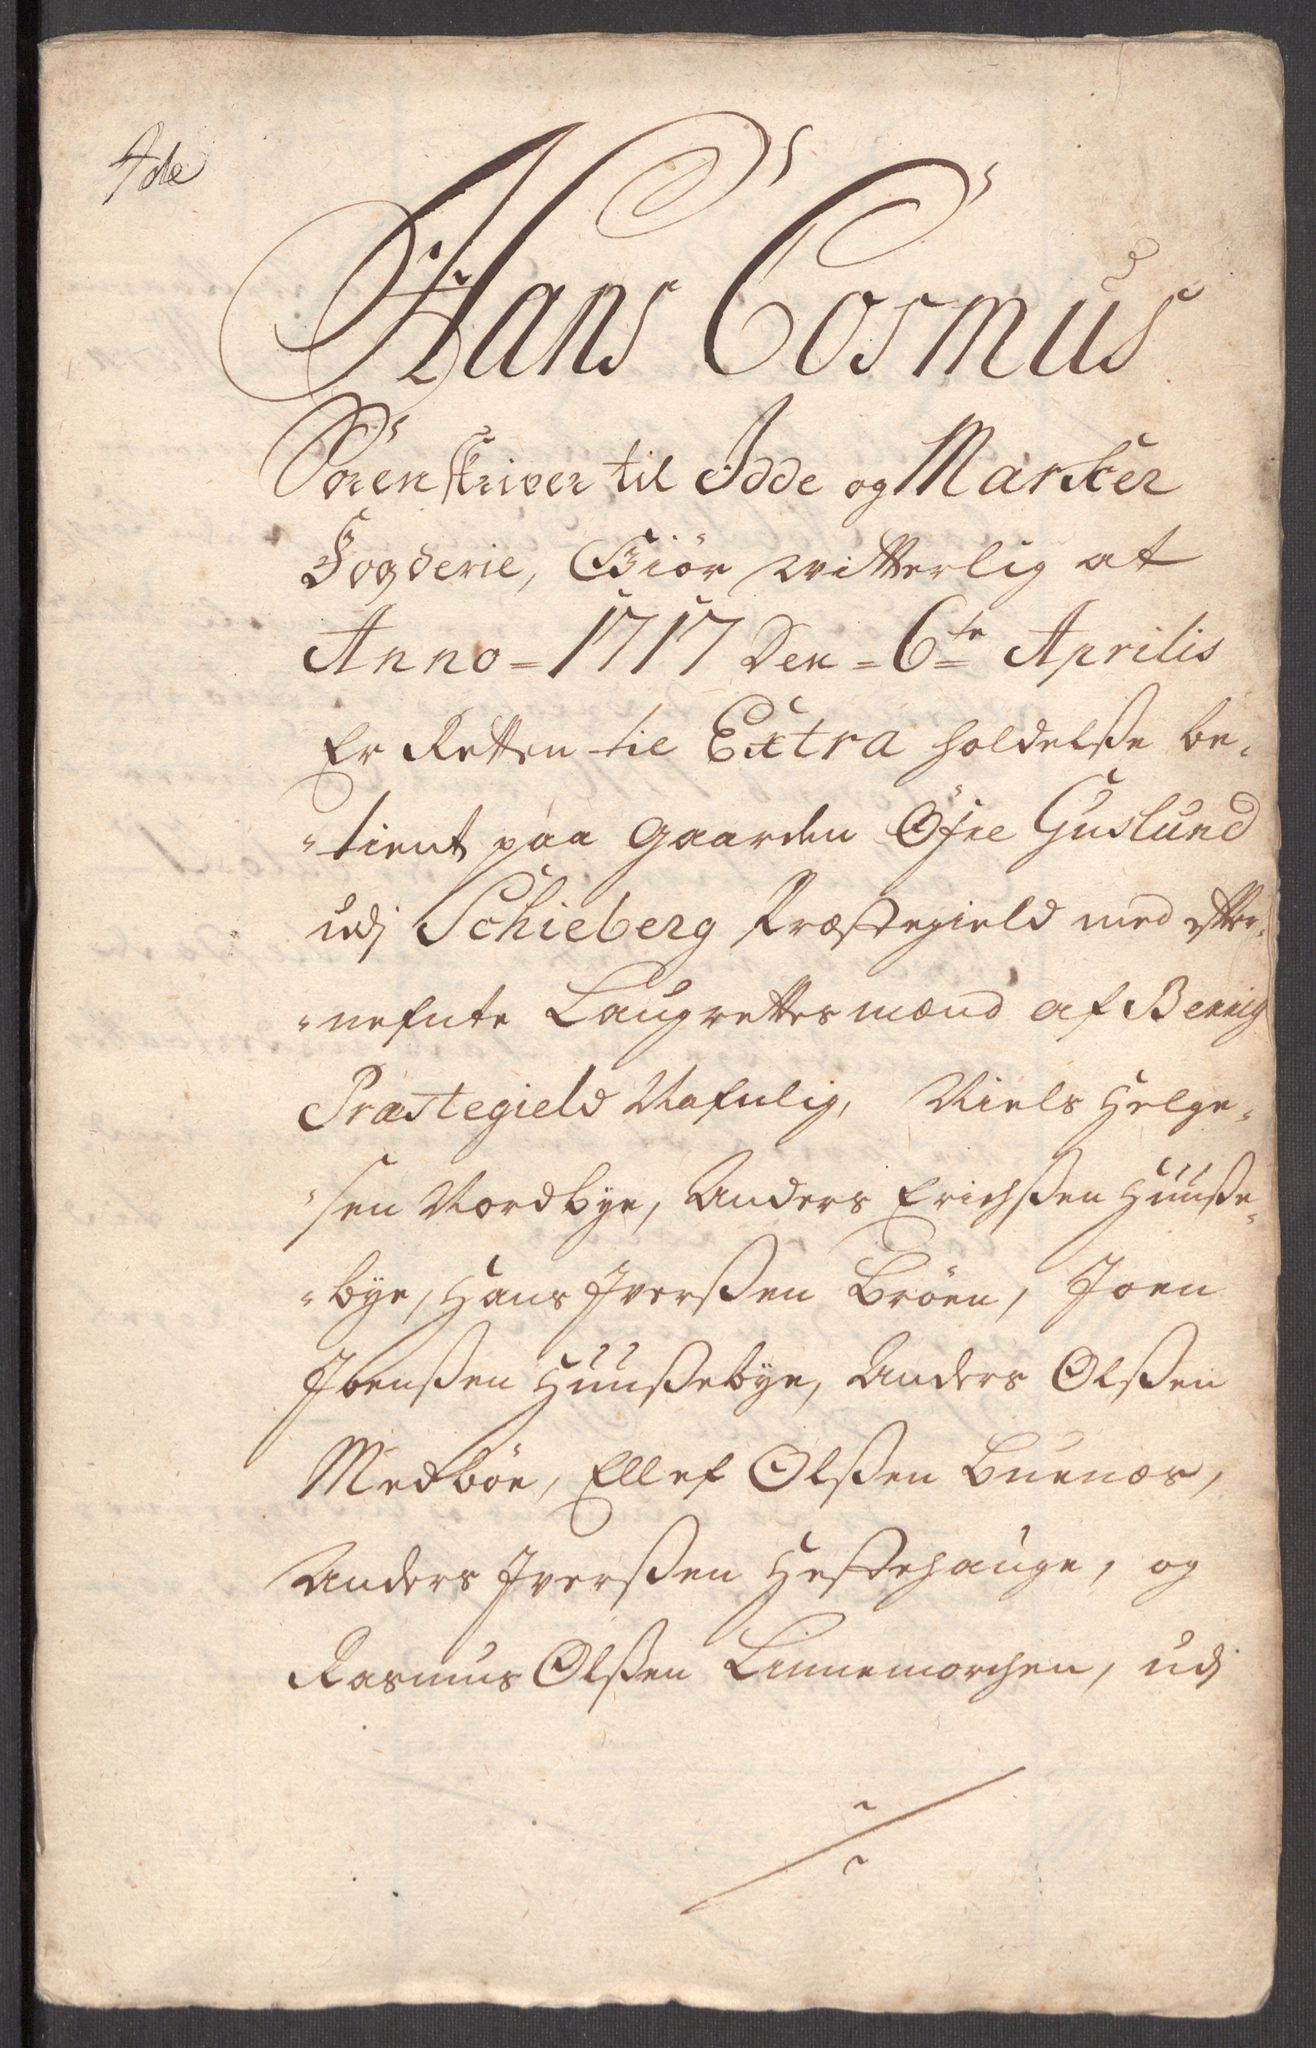 Ide
Hans Cosmus
Sorenskriver til Idde og Marker
Fogderie, Giör witterlig at
Anno = 1717 Den = 6te Aprilis
Er Retten til Extra holdelße be-
-tient paa Gaarden Öfre Guslund
udj Schieberg Præstegield med efter-
-nefnte Laugrettesmænd af Berrig
Præstegield Nafnlig, Niels Helge-
-sen Nordbye, Anders Erichßen Huuße-
-bye, Hans Iverßen Bröen, Joen
Ibenßen Huußebye, Anders Olßen
Medböe, Ellef Olßen Buenæs,
Anders Iverßen Hestehauge, og
Rasmus Olßen Linnemorchen, udj